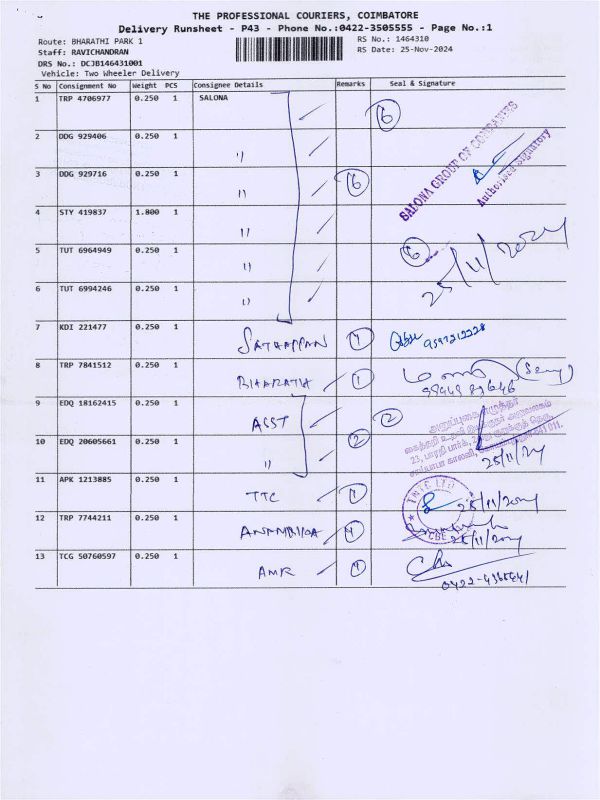 THE PROFESSIONAL COURIERS, COIMBATORE
Delivery Runsheet - P43 - Phone No.:0422-3505555 - Page No.:1
Route: BHARATHI PARK 1
RS No.: 1464310
Staff: RAVICHANDRAN
RS Date: 25-Nov-2024
DRS No.: DCJB146431001
Vehicle: Two Wheeler Delivery
S No Consignment No Weight PCS Consignee Details Remarks Seal & Signature
1 TRP 4706977 0.250 1 SALONA 6
2 DDG 929406 0.250 1 〃
3 DDG 929716 0.250 1 〃 6
SALONA GROUP OF COMPANIES
Authorised Signatory
4 STY 419837 1.800 1 〃
5 TUT 6964949 0.250 1 〃 6
25/11/2024
6 TUT 6994246 0.250 1 〃
7 KDI 221477 0.250 1 SATHAPPAN 1
8 TRP 7841512 0.250 1 BHARATH 1
9 EDQ 18162415 0.250 1 ASST 2
10 EDQ 20605661 0.250 1 〃 2
25/11/24
11 APK 1213885 0.250 1 TTC 1 25/11/2024
12 TRP 7744211 0.250 1 1
CBE
25/11/2024
13 TCG 50760597 0.250 1 AMR 1